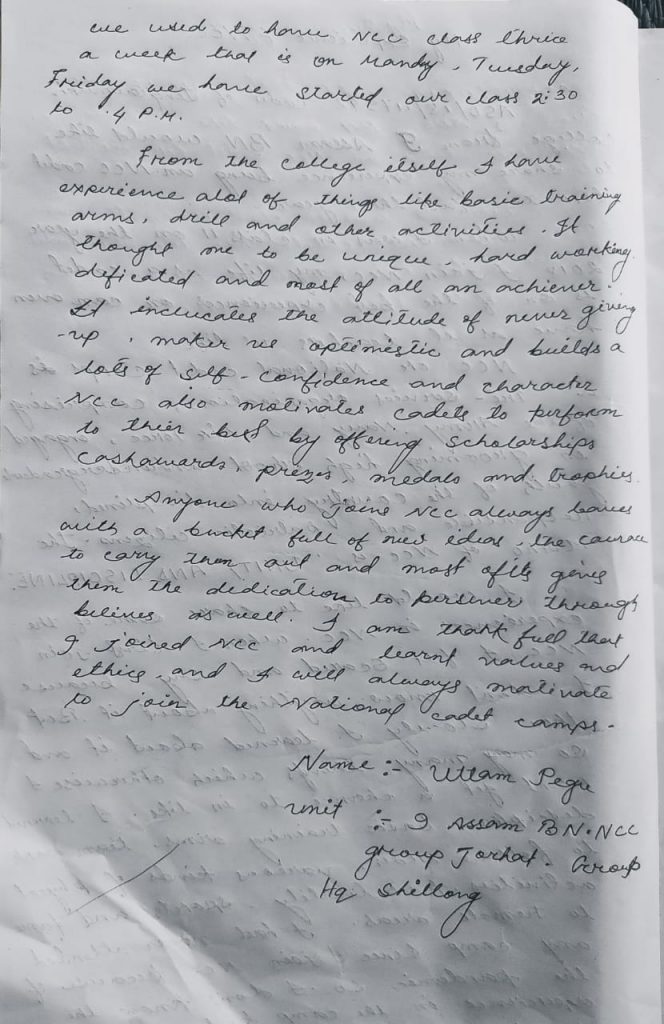 we used to have NCC class thrice
a week that is on Manday, Tuesday,
Friday we have started our class 2:30
to 4 P.M.
From the college itself I have
experience alot of things like basic training
arms, drill and other activities. It
thought me to be unique, hard working.
dedicated and most of all an achiever.
It inclucates the attitude of never giving
-up, makes us optimistic and builds a
lots of self-confidence and character
NCC also motivates cadets to perform
to their best by offering scholarships
cashawards, prizes, medals and trophies.
Anyone who joins NCC always leaves
with a bucket full of new ideas, the courage
to carry them out and most of its gives
them the dedication to persiver through
belives as well. I am thank full that
I joined NCC and learnt values and
ethics, and I will always motivate
to join the National cadet camps.
Name :- Uttam Pegu
unit :- 9 Assam BN. NCC
group Jorhat. Group
Hq Shillong